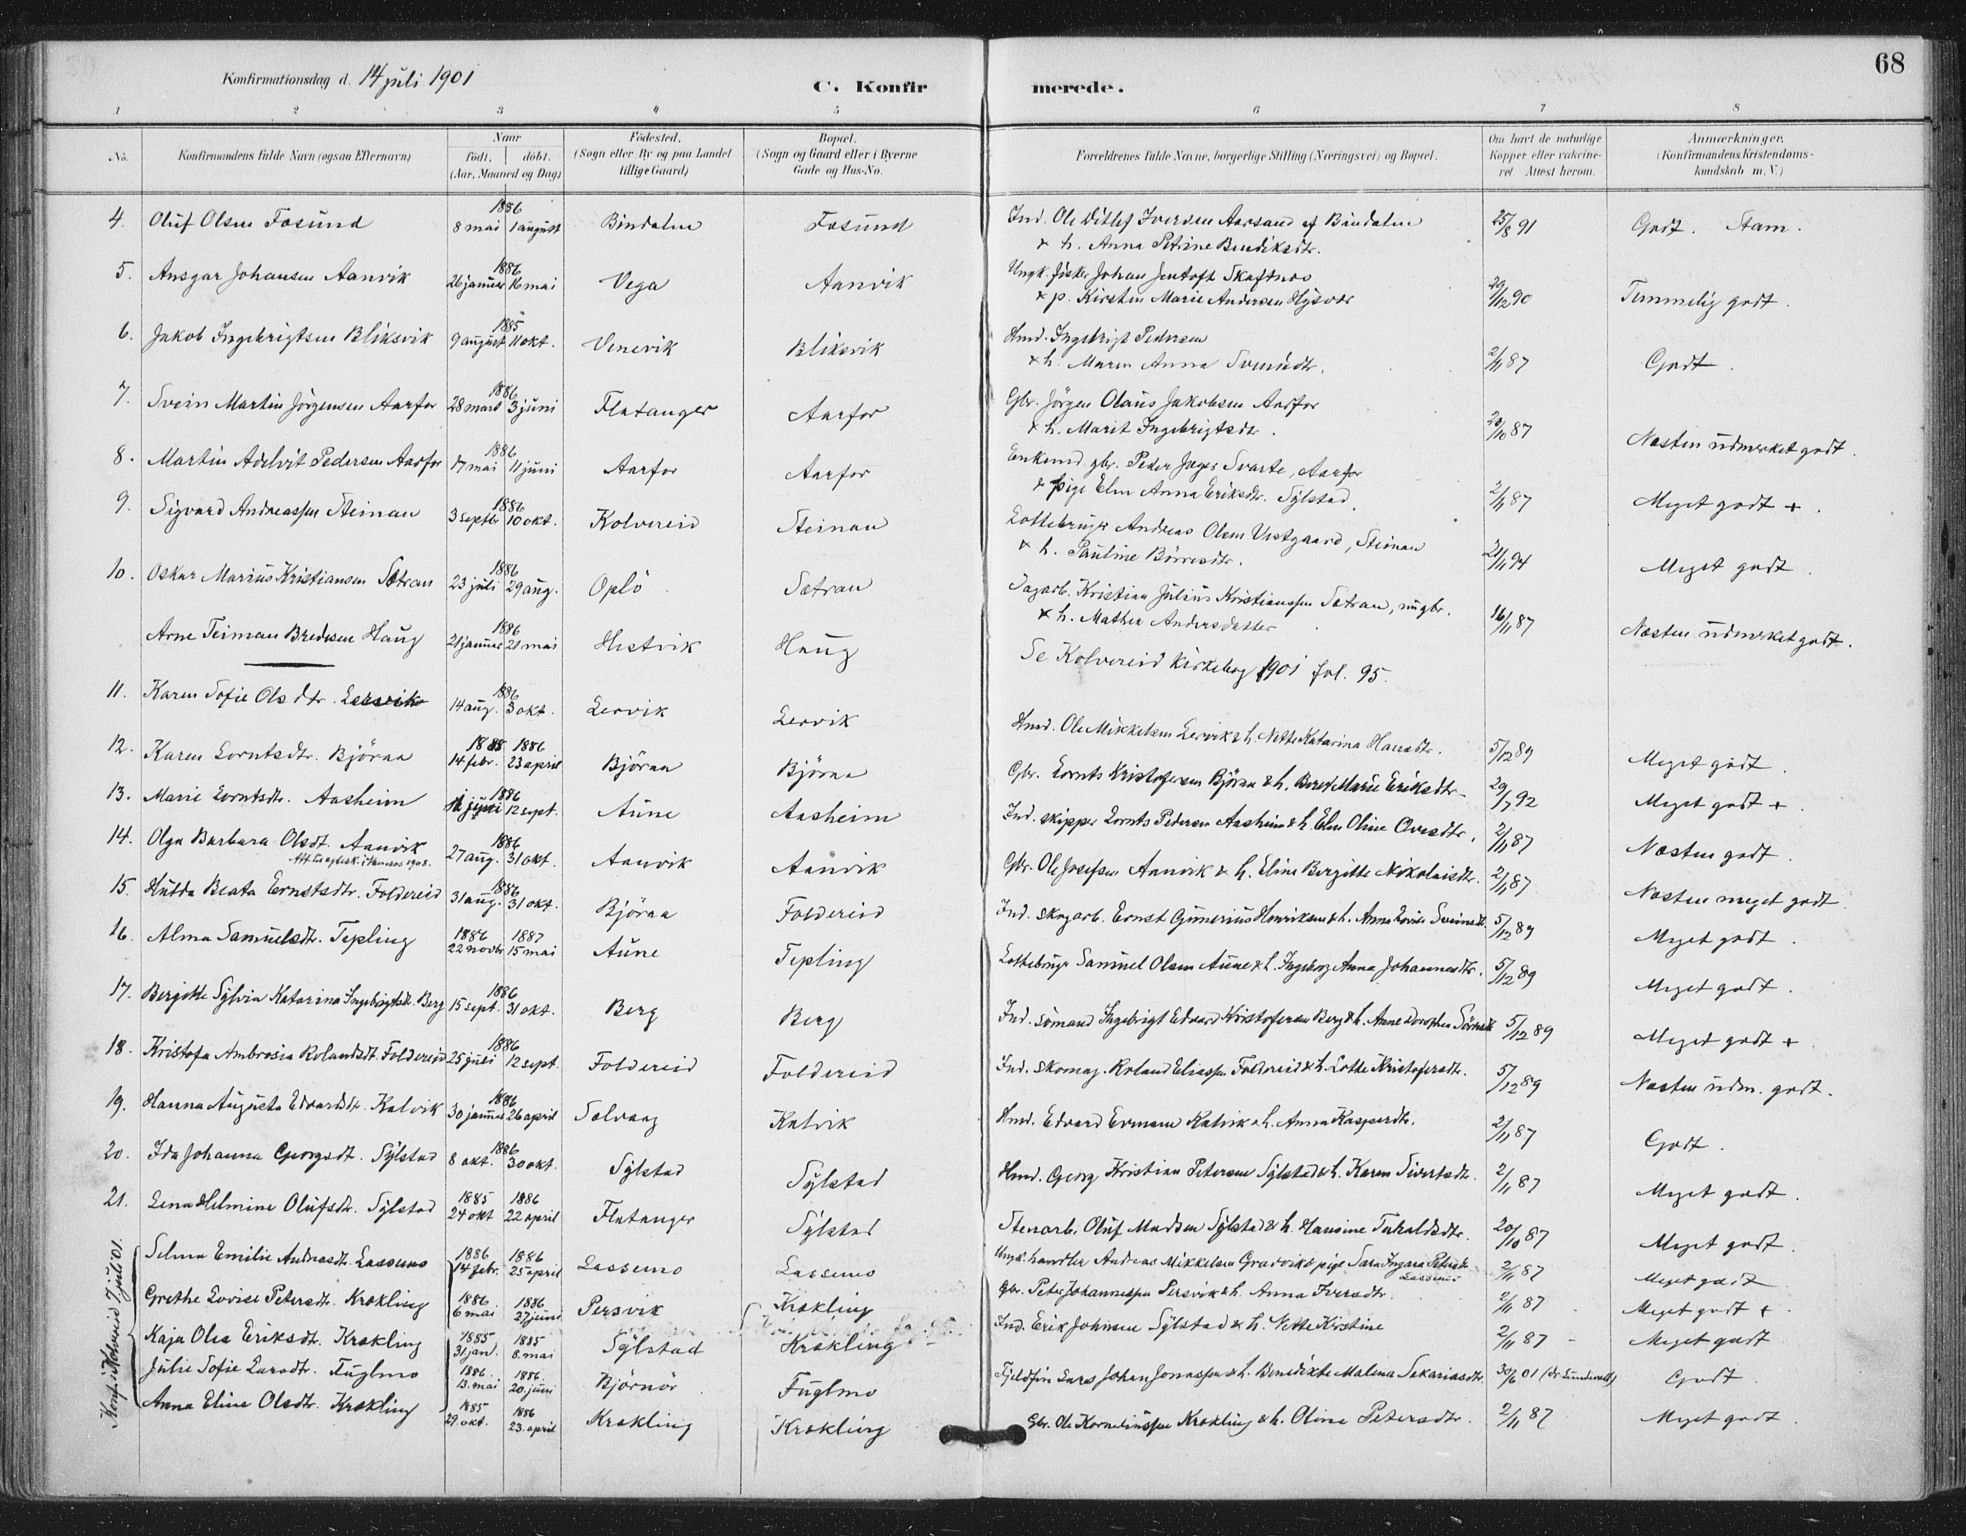 68
Konfirmationsdag d. 14 juli 1901
C. Konfirmerede.
1 2 3 4 5 6 7 8
No. Konfirmandens fulde Navn (ogsaa Efternavn) Naar født, døbt. (Aar, Maaned og Dag) Fødested. (Sogn eller By og paa Landet tillige Gaard) Bopæl. (Sogn og Gaard eller i Byerne Gade og Hus-No. Forældrenes fulde Navne, borgerlige Stilling (Næringsvei) og Bopæl. Om havt de naturlige Kopper eller vakcineret Attest herom. Anmærkninger. (Konfirmandens Kristendomskundskab m. V.)
4. Oluf Olsen Fosund 1886 8 mai 1 august Bindalen Fosund Ind. Ole Ditlef Iversen Aarsand af Bindalen & h. Anna Petrine Bendiksdtr. 25/8 91 Godt. Stam.
5. Ansgar Johansen Aanvik 1886 26 januar 16 mai Vega Aanvik Ungk. fisker Johan Jentoft Skaftnes & p. Kirsten Marie Andersen Hysvær 29/12 90 Temmelig godt.
6. Jakob Ingebrigtsen Bliksvik 1885 9 august 11 okt. Venevik Bliksvik Hmd. Ingebrigt Pedersen & h. Maren Anna Svensdtr. 2/11 87 Godt.
7. Svein Martin Jörgensen Aarfor 1886 28 mars 3 juni Flatanger Aarfor Gbr. Jörgen Olaus Jakobsen Aarfor & h. Marit Ingebrigtsdtr. 20/10 87 Næsten udmerket godt.
8. Martin Adelvit Pedersen Aarfor 1886 17 mai 11 juni Aarfor Aarfor Enkemd. gbr. Peder Jæger Svarte, Aarfor & pige Elen Anna Eriksdtr. Sylstad. 2/11 87 Meget godt +.
9. Sigvard Andreassen Steinan 1886 3 septbr 10 okt. Kolvereid Steinan Lottebruger Andreas Olsen Vestgaard, Steinan & h. Pauline Börresdtr. 21/11 94 Meget godt.
10. Oskar Marius Kristiansen Sætran 1886 23 juli 29 aug. Oplö Sætran Dagarb. Kristian Julius Kristianssen Sætran, ungbr. & h. Mathea Andersdatter 16/11 87 Næsten udmerket godt.
Arne Teiman Bredesen Haug 1886 21 januar 21 mai Hestvik Haug Se Kolvereid kirkebog 1901 fol. 95.
11. Karen Sofie Olsdtr. Lervik 1886 14 aug. 3 okt. Lervik Lervik Hmd. Ole Mikkelsen Lervik & h. Nette Katarina Hansdtr. 5/12 89 Meget godt.
12. Karen Lorntsdtr. Björaa 1885 14 febr. 1886 23 april Björaa Björaa Gbr. Lornts Kristofersen Björaa & h. Beret Marie Eriksdtr. 29/7 92 Meget godt +.
13. Marie Lorntsdtr. Aasheim 1886 11 juni 12 sept. Aune Aasheim Ind. skipper Lornts Pedersen Aasheim & h. Elen Oline Ovesdtr. 2/11 87 Næsten godt.
14. Olga Barbara Olsdt. Aanvik 1886 27 aug. 31 okt. Aanvik Aanvik Gbr. Ole Josefsen Aanvik & h. Eline Bergitte Nikolaisdtr. 2/11 87 Næsten meget godt
15. Hulda Beata Ernstsdtr. Foldereid 1886 31 aug. 31 okt. Björaa Foldereid Ind. skogarb. Ernst Gunerius Henriksen & h. Anna Lovise Sveinsdtr. 5/12 89 Meget godt.
16. Alma Samuelsdtr. Tepling 1886 22 novbr 1887 15 mai Aune Tepling Lottebruger Samuel Olsen Aune & h. Ingeborg Anna Johannesdtr. 5/12 89 Meget godt.
17. Bergitte Sylvia Katarina Ingebrigtsdt. Berg 1886 15 sept. 31 okt. Berg Berg Ind. sömand Ingebrigt Edvard Kristofersen Berg & h. Anne Dorothea 5/12 89 Meget godt +
18. Kristofa Ambrosia Rolandsdt. Foldereid 1886 25 juli 12 sept. Foldereid Foldereid Ind. skomag. Roland Eliassen Foldereid & h. Lotte Kristofersdtr. 5/12 89 Næsten udm. godt.
19. Hanna Augusta Edvardsdtr. Kalvik 1886 30 januar 26 april Solvang Kalvik Hmd. Edvard Evensen Kalvik & h. Anna Kaspersdtr. 2/11 87 Godt.
20. Ida Johanna Georgsdt. Sylstad 1886 8 okt. 30 okt. Sylstad Sylstad Hmd. Georg Kristian Petersen Sylstad & h. Karen Sivertsdtr. 2/11 87 Meget godt.
21. Lena Helmine Olufsdtr. Sylstad 1885 24 okt 1886 22 april Flatanger Sylstad Stenarb. Oluf Madsen Sylstad & h. Hansine Tukaldsdtr. 20/10 87 Meget godt.
Konf. i Kolvereid 7 juli 01.
Selma Emilie Andreasdt. Lassemo 1886 14 febr. 1886 25 april Lassemo Lassemo Ungk. handler Andreas Mikkelsen Gravvik & pige Sara Ingara Petersdtr Lassemo 2/11 87 Meget godt
Grethe Lovise Petersdtr. Krækling 1886 6 mai 1886 27 juni Persvik Krækling Gbr. Peter Johannessen Persvik & h. Anna Iversdtr. 2/11 87 Meget godt +.
Kaja Olea Eriksdt. Krækling 1885 31 jan. 1885 8. mai Sylstad Krækling Ind. Erik Johnsen Sylstad & h. Nette Kristine 2/11 87 Meget godt
Julie Sofie Larsdtr. Fuglmo 1886 13. mai 1886. 20. juni Björnör Fuglmo Fjeldfin Lars Johan Jonassen & h. Benedikte Malena Sakariasdtr. 30/6 01 (Dr Lundevall) Godt.
Anna Eline Olsdtr. Krækling 1885 29. okt. 1886 23. april Krækling Krækling Gbr. Ole Korneliussen Krækling & h. Oline Petersdtr. 2/11 87 Meget godt.